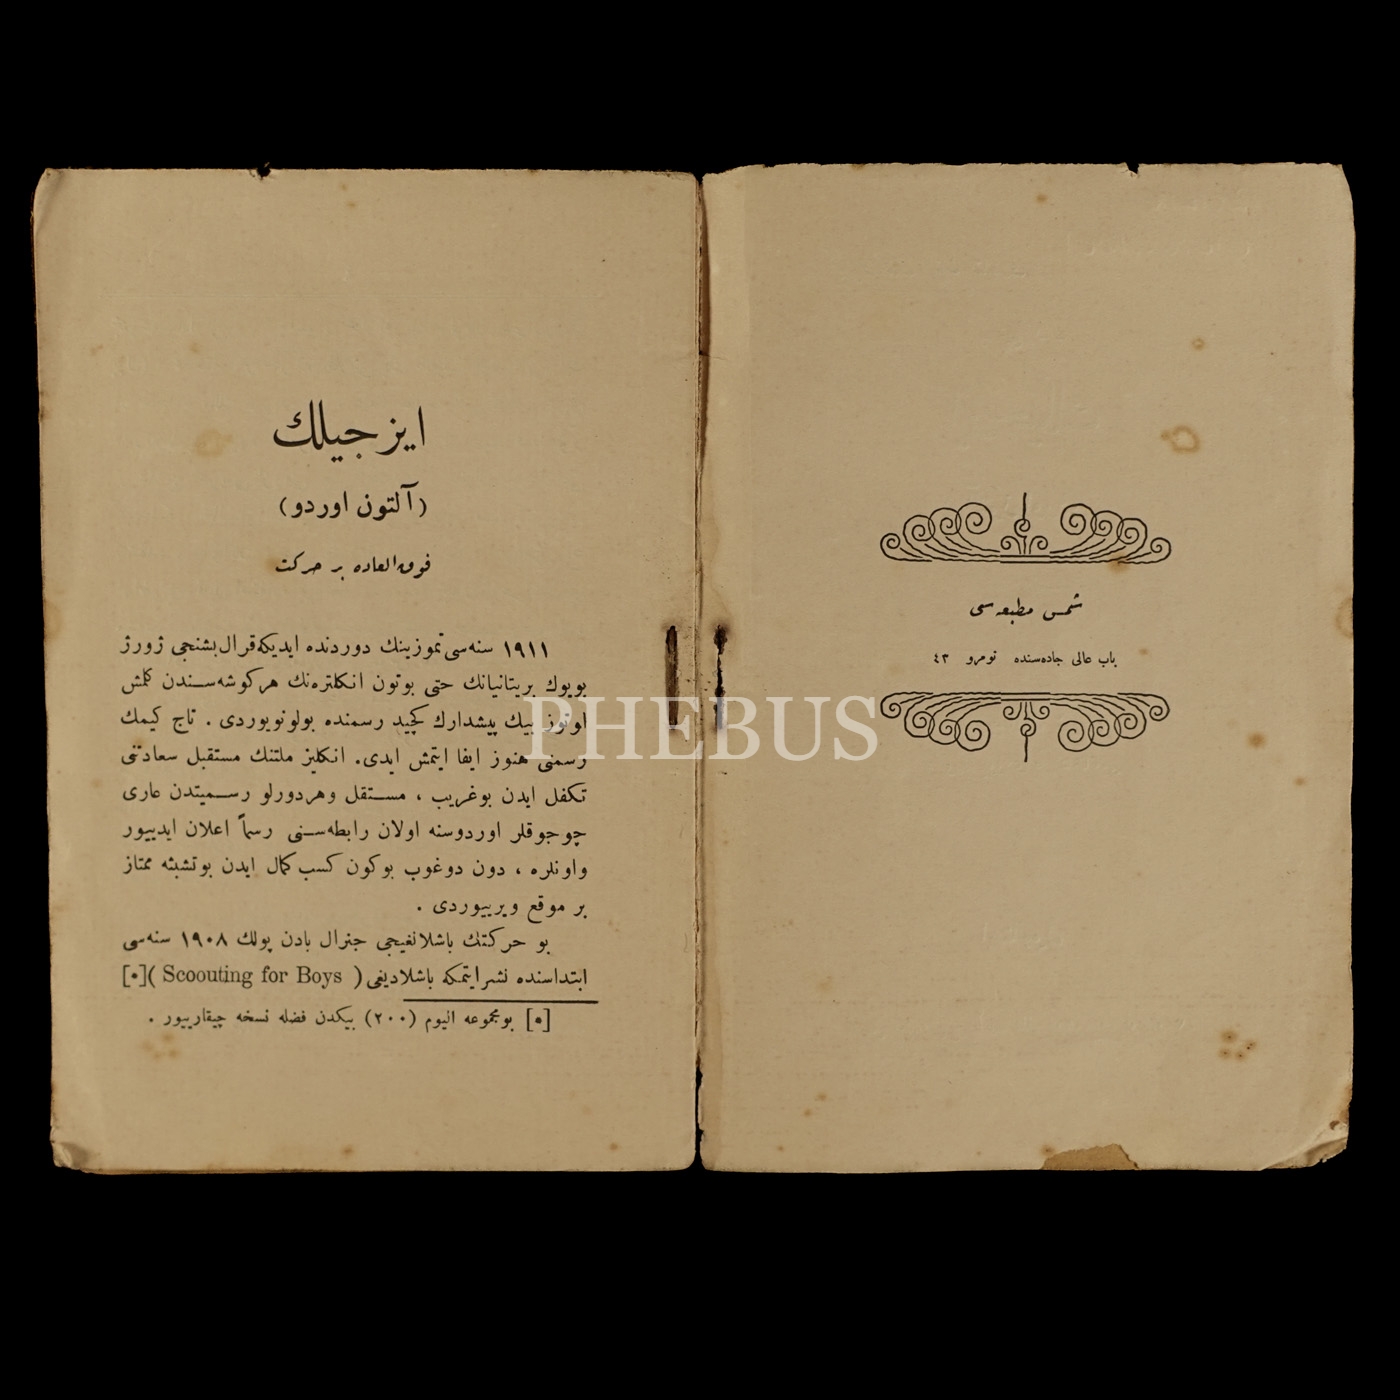 شمس مطبعه‌سی
باب عالی جاده‌سنده نومرو ٤٣
ایزجیلك
(آلتون اوردو)
فوق‌العاده بر حركت
١٩١١ سنه‌سی تموزینك دوردنده ایدیكه قرال بشنجی ژورژ
بویوك بریتانیانك حتی بوتون انكلتره‌نك هر كوشه‌سندن كلمش
اوتوز بیك پیشدارك كچید رسمنده بولونویوردی . تاج كیمك
رسمنی هنوز ایفا ایتمش ایدی. انكلیز ملتنك مستقبل سعادتنی
تكفل ایدن بوغریب ، مستقل وهردورلو رسمیتدن عاری
چوجوقلر اوردوسنه اولان رابطه‌سنی رسماً اعلان ایدییور
واونلره ، دون دوغوب بوكون كسب كمال ایدن بوتشبثه ممتاز
بر موقع ویرییوردی .
بو حركتك باشلانغیجی جنرال بادن پولك ١٩٠٨ سنه‌سی
ابتداسنده نشر ایتمكه باشلادیغی ( Scoouting for Boys )[•]
[•] بومجموعه الیوم (٢٠٠) بیكدن فضله نسخه چیقارییور .
PHEBUS